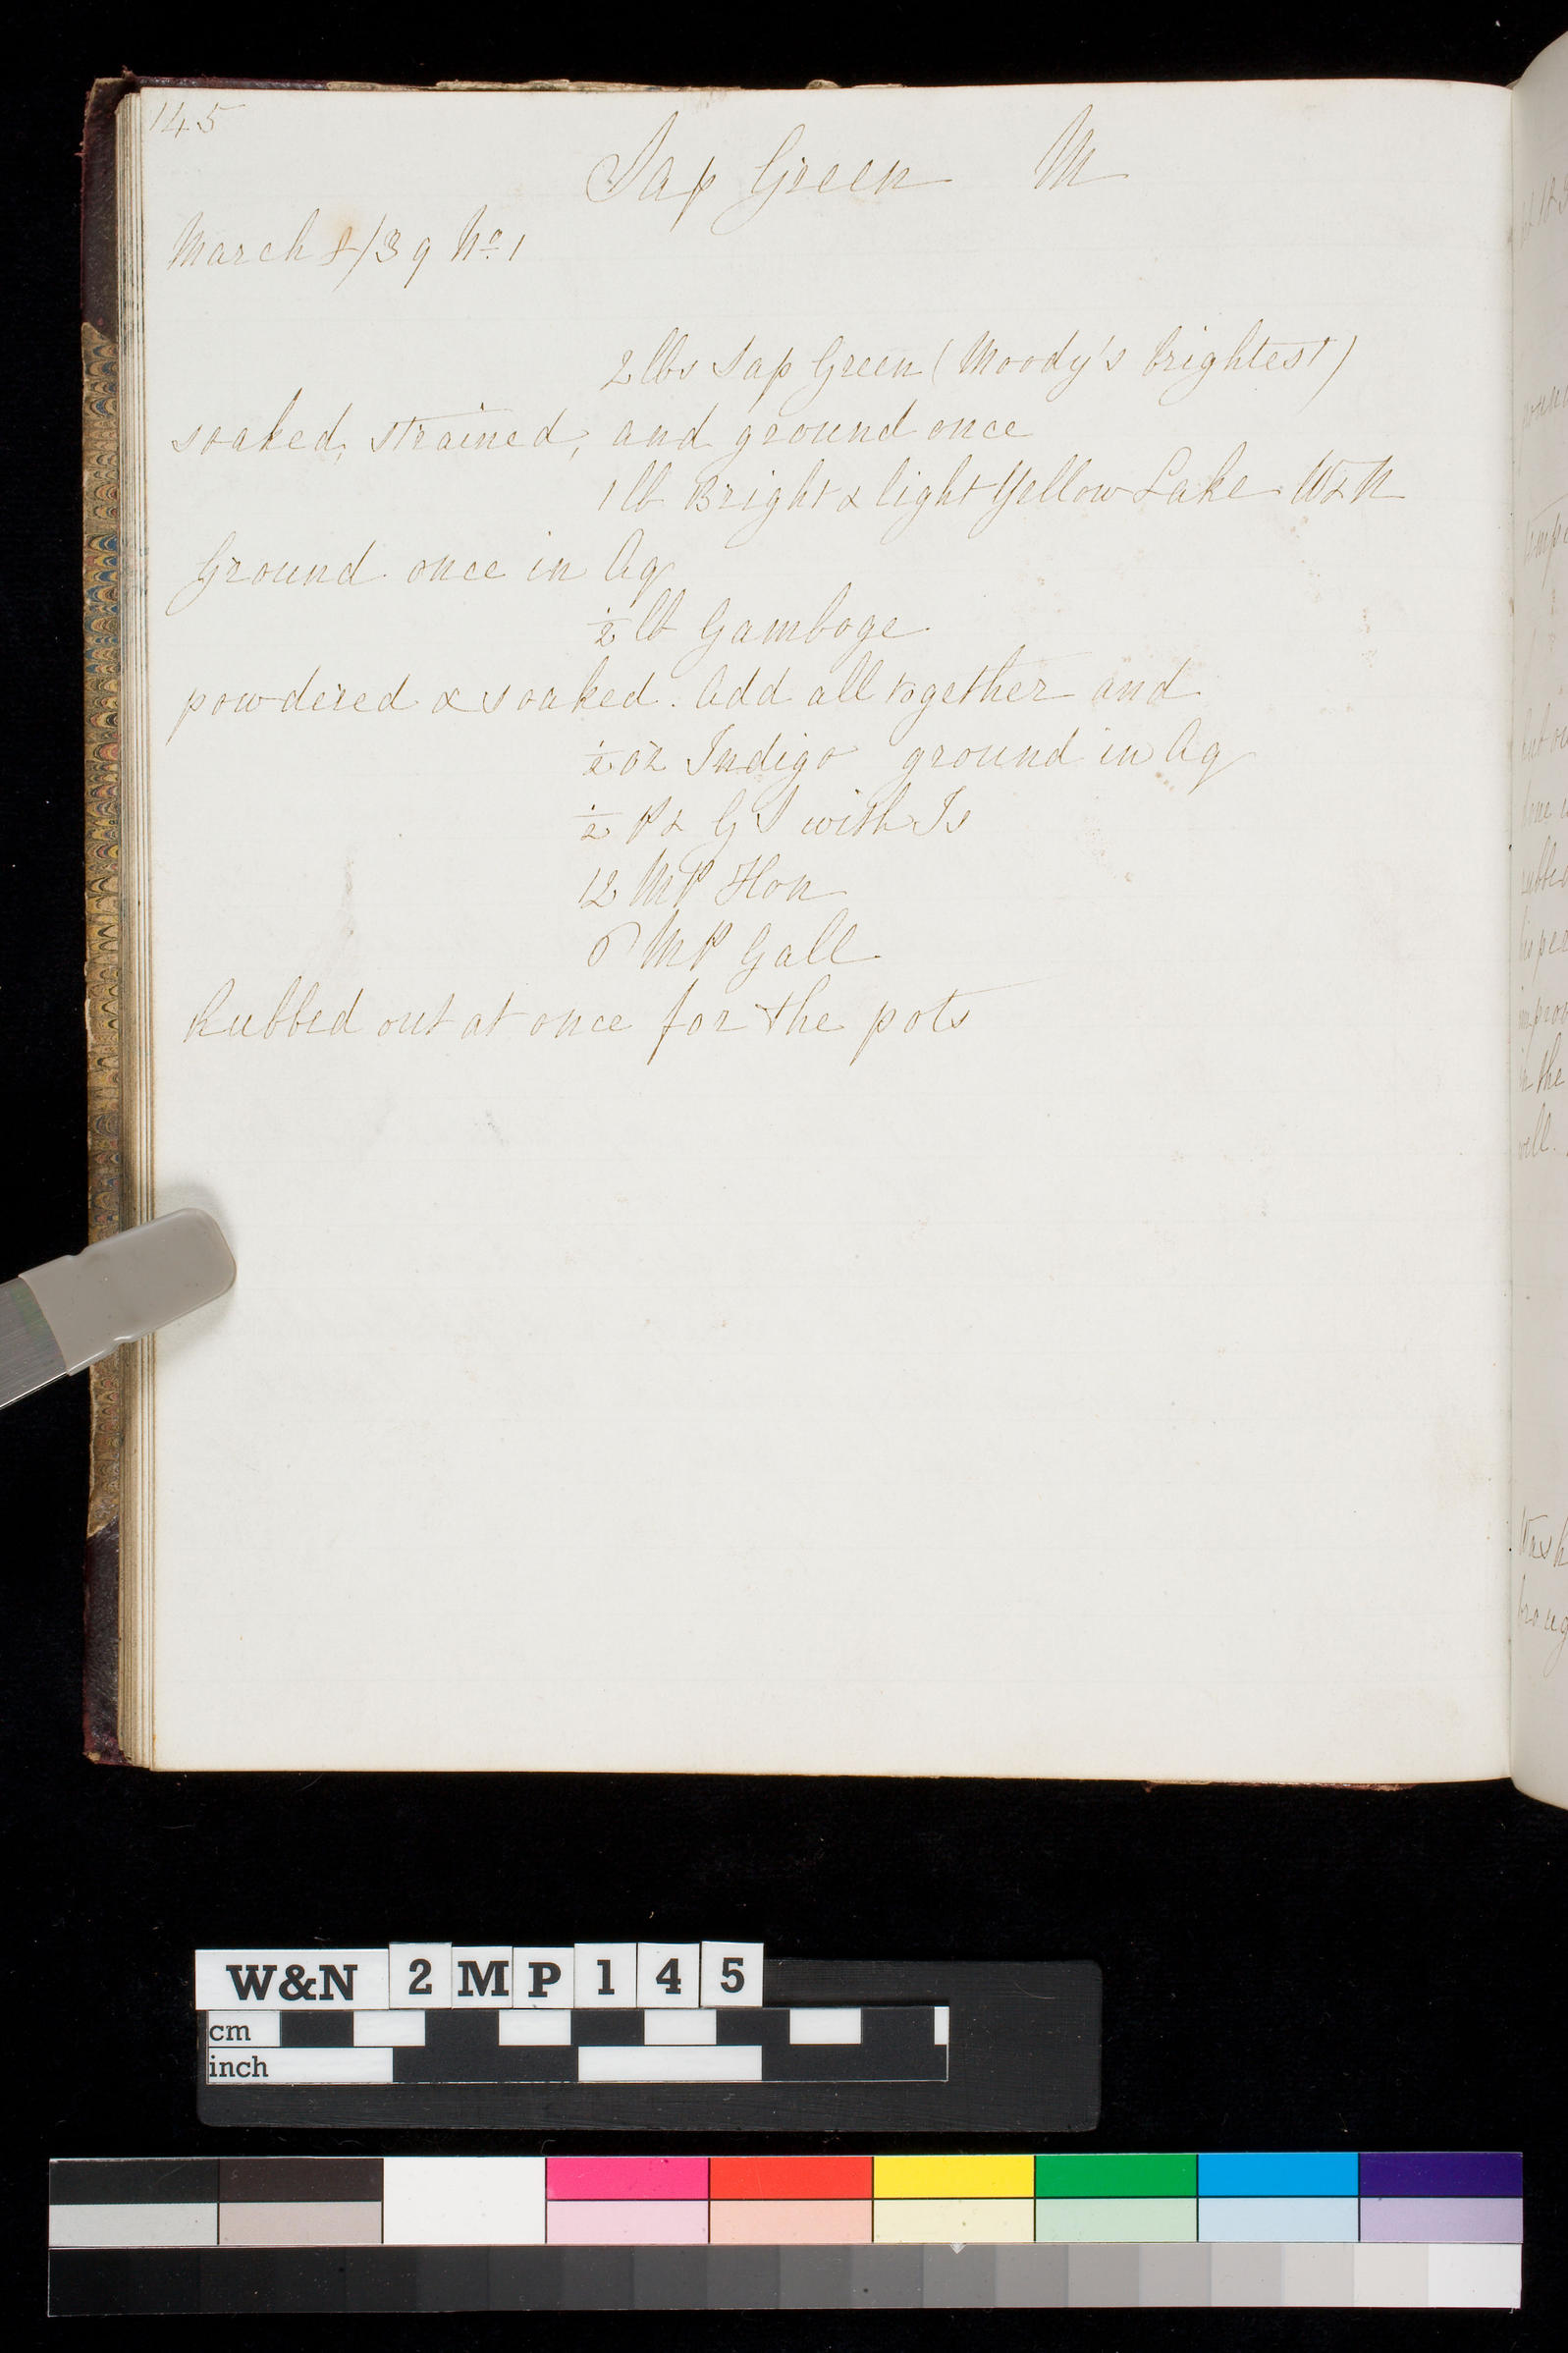 145
Sap Green M
March 8/39 No. 1
2 lbs Sap Green (Moody's brightest)
soaked, strained, and ground once
1 lb Bright & light Yellow Lake W & N
Ground once in Aq
½ lb Gamboge
powdered & soaked. Add all together and
½ oz Indigo ground in Aq
½ P & G S with Is
12 MP Hon
6 MP Gall
Rubbed out at once for the pots
W&N 2 M P 1 4 5
cm
inch